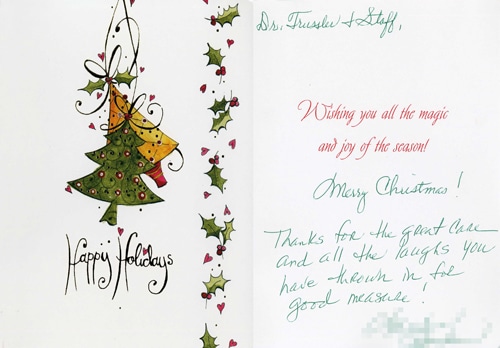 Happy Holidays
Dr. Trussler & Staff,
Wishing you all the magic
and joy of the season!
Merry Christmas!
Thanks for the great care
and all the laughs you
have thrown in for
good measure!